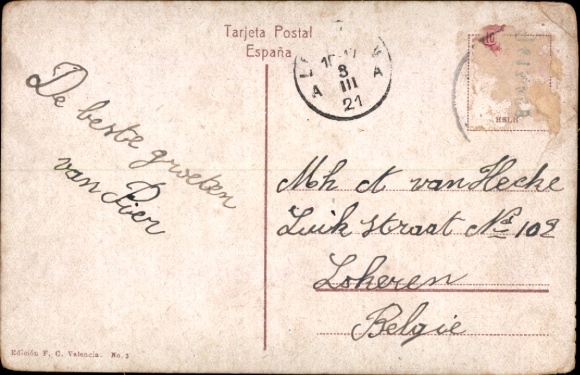 Tarjeta Postal
España
8
III
21
De beste groeten
van Pier
Mh A van Hecke
Luik Straat No 102
Lokeren
Belgie
HSLH
Edición F. C. Valencia. No. 3